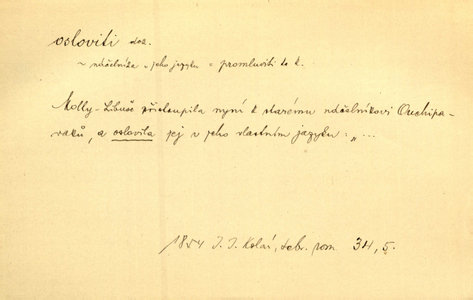 osloviti dok.
~ náčelníka v jeho jazyku = promluviti k k.
Molly-Libuše přistoupila nyní k starému náčelníkovi Orechipa-
raků, a oslovila jej v jeho vlastním jazyku: „ ...
1854 J. J. Kolár, sebr. rom. 34, 5.